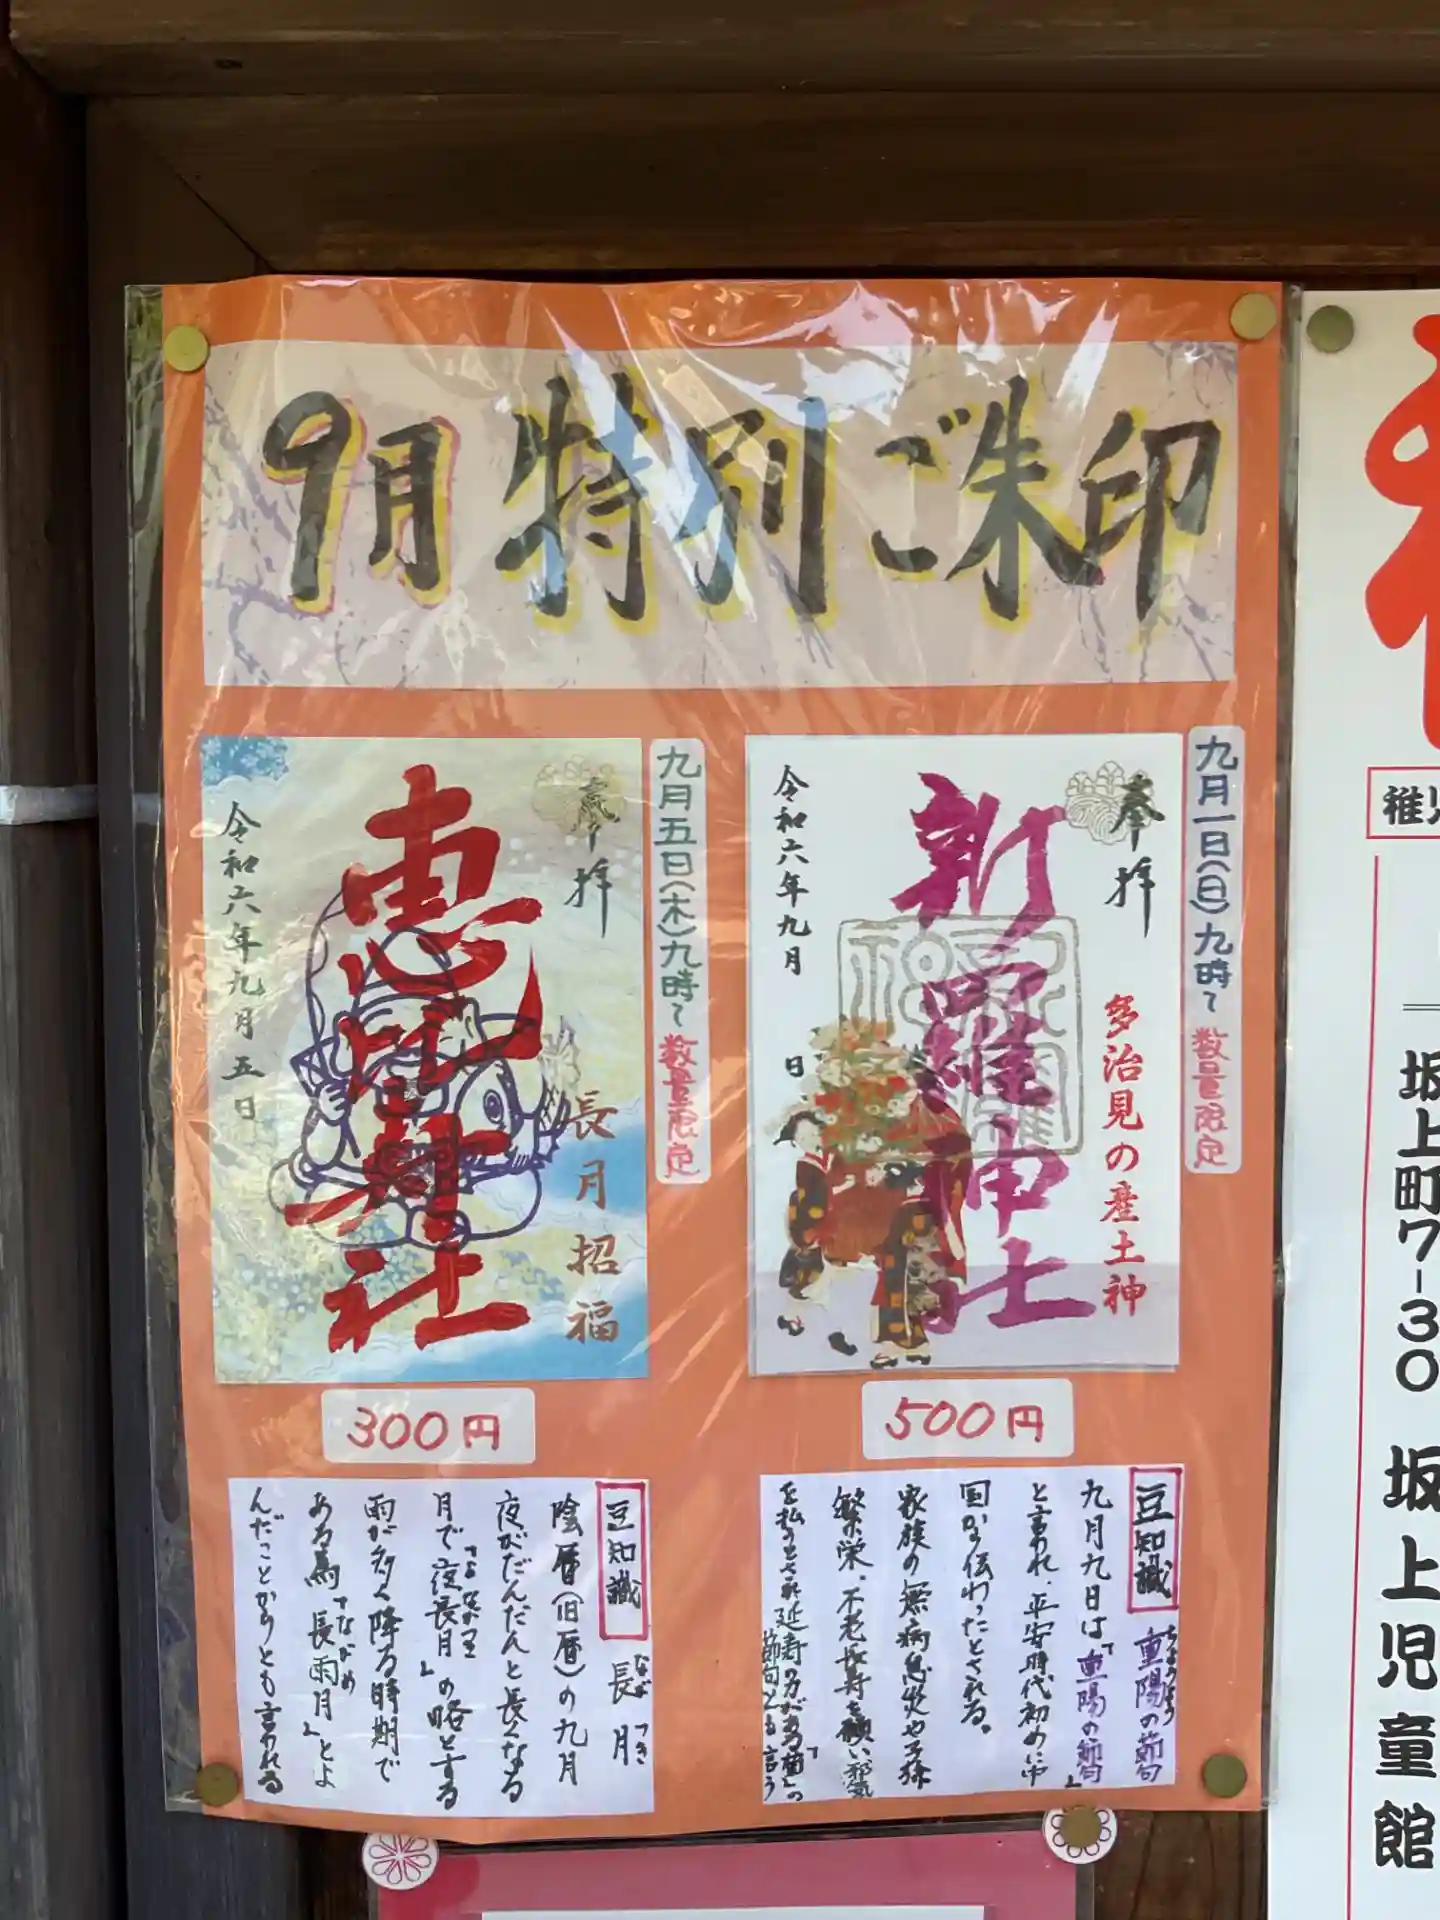 9月 特別ご朱印
九月一日(日)九時〜 数量限定
奉拝
多治見の産土神
新羅神社
令和六年九月 日
500円
九月五日(木)九時〜 数量限定
奉拝
長月招福
恵比寿社
令和六年九月五日
300円
豆知識 重陽の節句
ちょうよう
九月九日は「重陽の節句」
と言われ、平安時代初めに中
国から伝わったとされる。
家族の無病息災や子孫
繁栄、不老長寿を願い邪気
を払うとされ延寿の力がある「菊」の
節句とも言う
豆知識 長月
なが つき
陰暦(旧暦)の九月
夜がだんだんと長くなる
月で「夜長月」の略とする
雨が多く降る時期で
ある為「長雨月」とよ
ながめ
んだことからとも言われる
坂上町7-30 坂上児童館